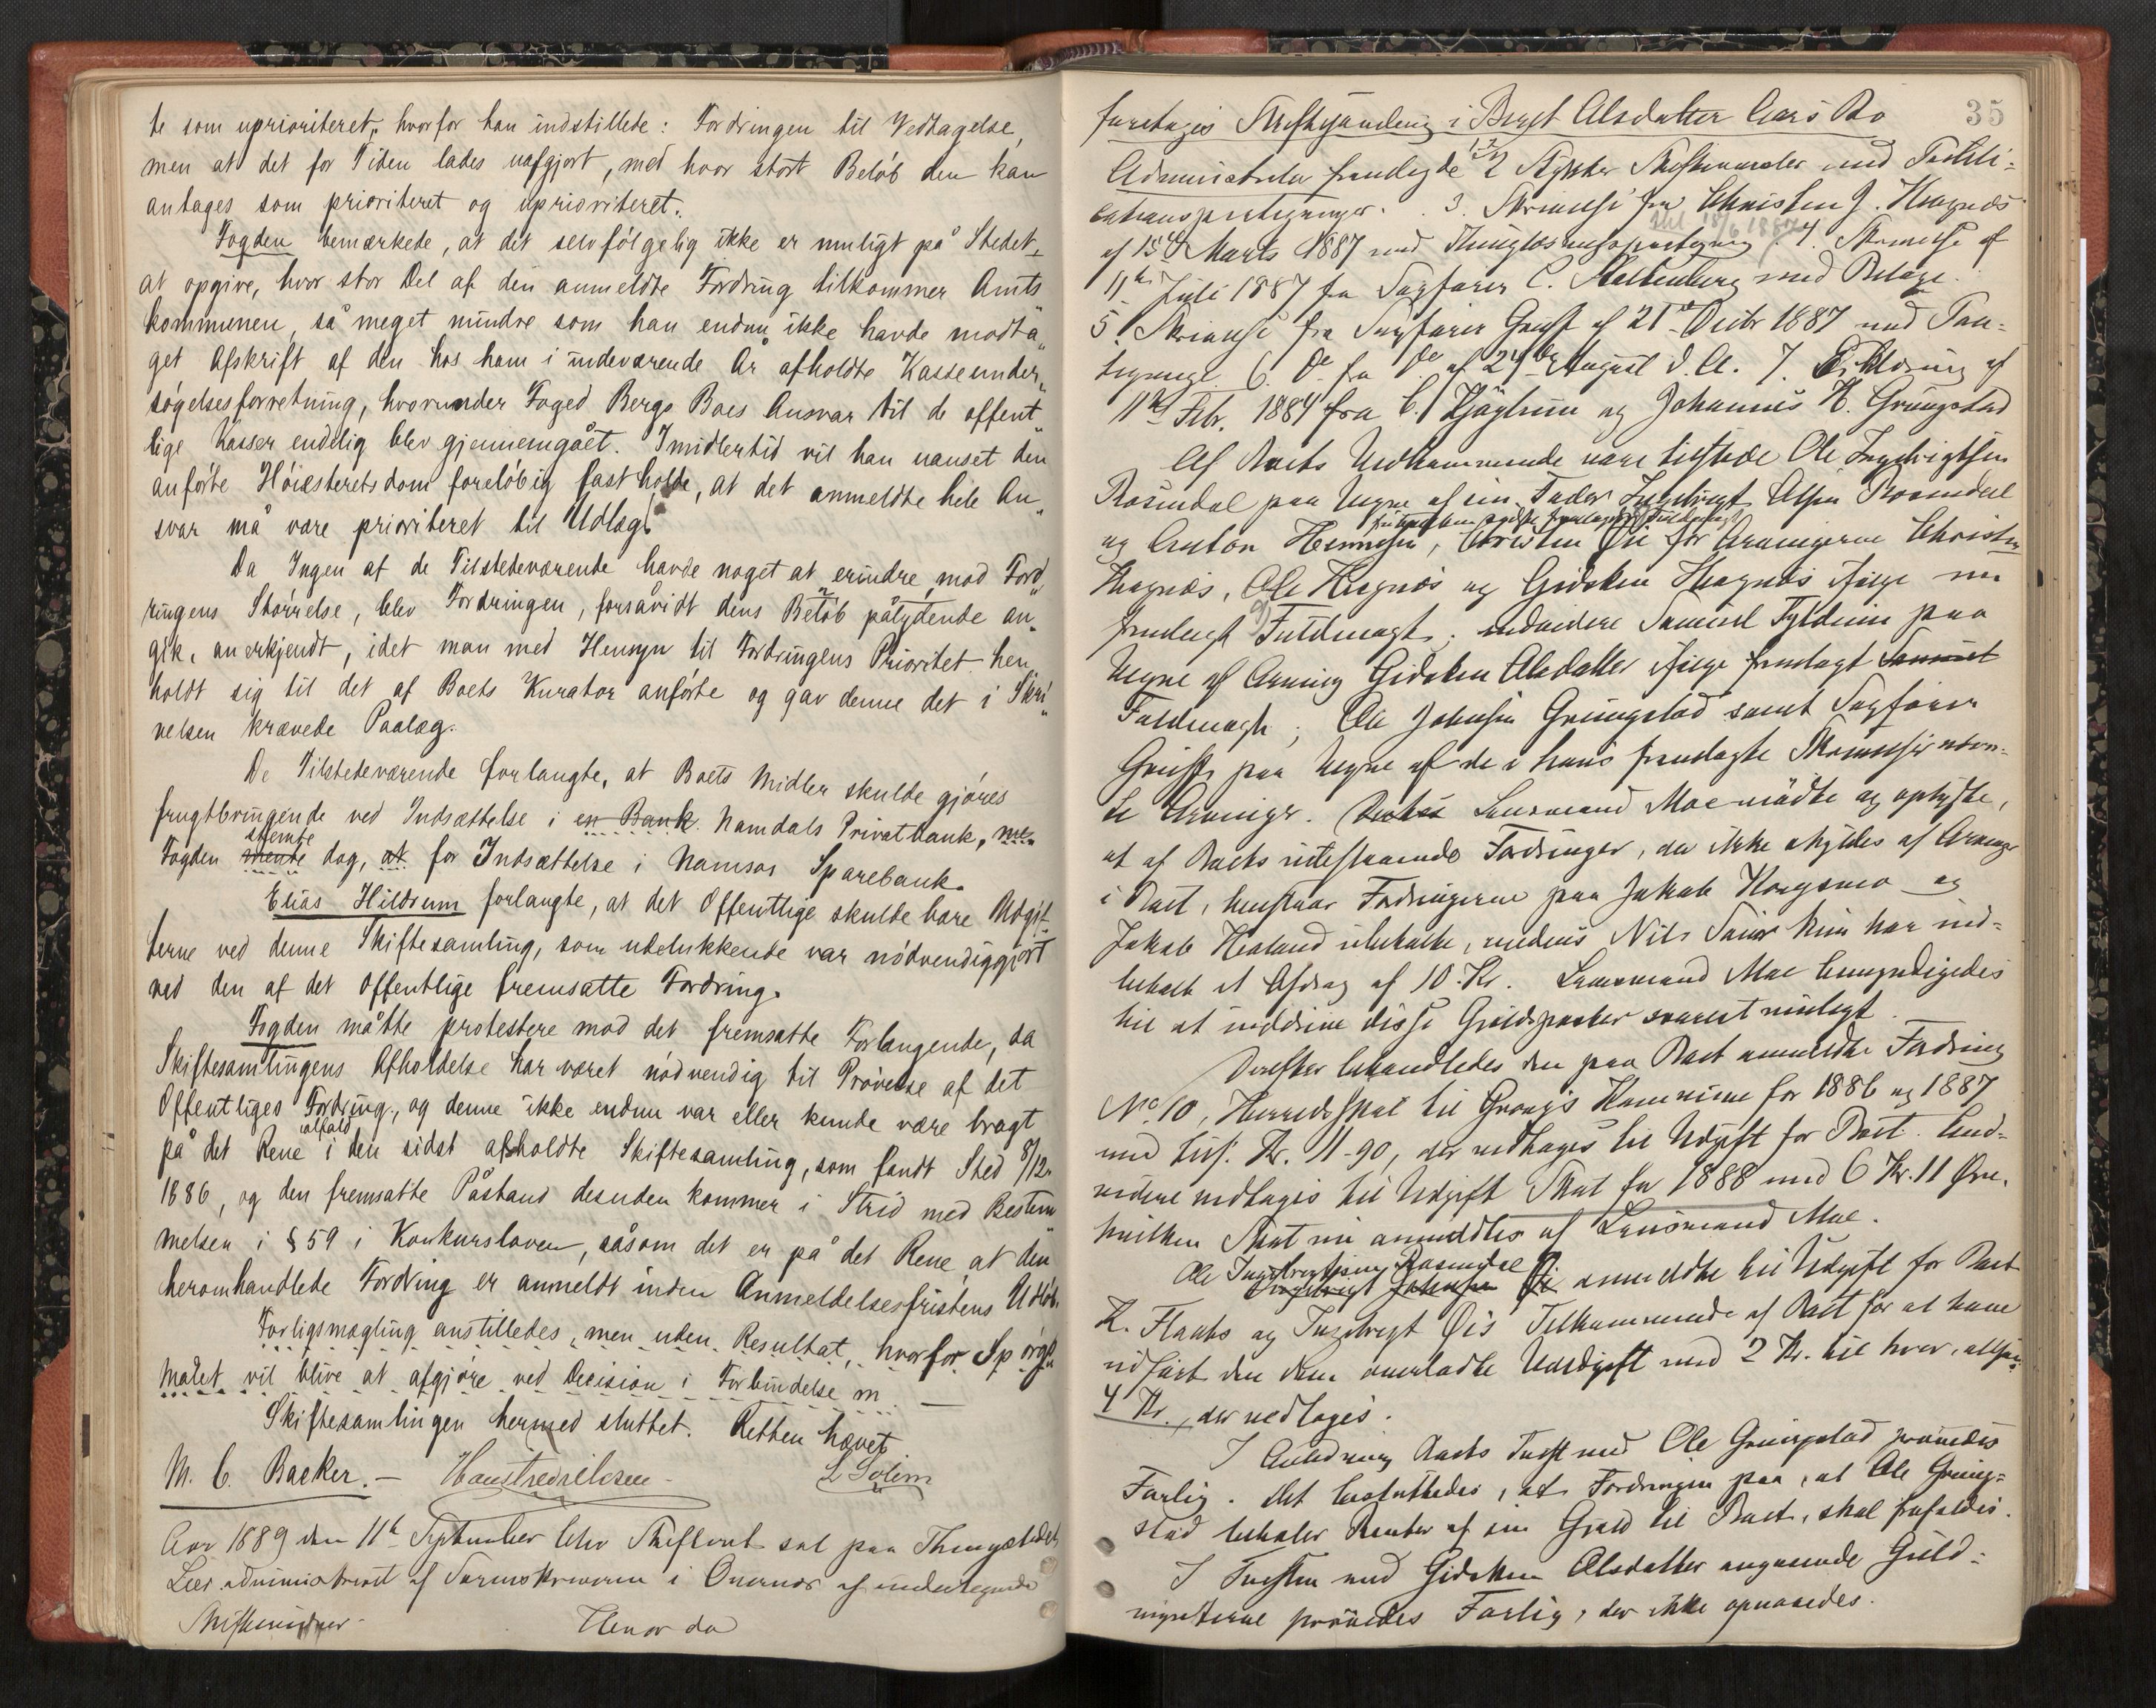 te som uprioriteret, hvorfor han indstillede: Fordringen til Vedtagelse,
men at det for Tiden lades uafgjort, med hvor stort Beløb den kan
antages som prioriteret og uprioriteret.
Fogden bemærkede, at det selvfølgelig ikke er muligt på Stedet
at opgive, hvor stor Del af den anmeldte Fordring tilkommer Amts
kommunen, så meget mindre som han endnu ikke havde modta„
get Afskrift af den hos ham i indeværende År afholdte Kasseunder„
søgelsesforretning, hvorunder Foged Bergs Boes Ansvar til de offent„
lige Kasser endelig blev gjennemgået. Imidlertid vil han uanset den
anførte Høiesteretsdom foreløbig fastholde, at det anmeldte hele An„
svar må være prioriteret til Udlæg.
Da Ingen af de Tilstedeværende havde noget at erindre mod Ford„
ringens Størrelse, blev Fordringen, forsåvidt dens Beløb pålydende an„
gik, anerkjendt, idet man med Hensyn til Fordringens Prioritet hen„
holdt sig til det af Boets Kurator anførte og gav denne det i Skri„
velsen krævede Paalæg.
De Tilstedeværende forlangte, at Boets Midler skulde gjøres
frugtbringende ved Indsættelse i en Bank Namdals Privatbank, men
stemte
Fogden mente dog, at for Indsættelse i Namsos Sparebank.
Elias Hildrum forlangte, at det Offentlige skulde bære Udgif„
terne ved denne Skiftesamling, som udelukkende var nødvendiggjort
ved den af det Offentlige fremsatte Fordring.
Fogden måtte protestere mod det fremsatte Forlangende, da
Skiftesamlingens Afholdelse har været nødvendig til Prøvelse af det
Offentliges Fordring, og denne ikke endnu var eller kunde være bragt
ialfald
på det Rene i den sidst afholdte Skiftesamling, som fandt Sted 8/12
1886, og den fremsatte Påstand desuden kommer i Strid med Bestem„
melsen i § 59 i Konkursloven, såsom det er på det Rene, at den
heromhandlede Fordring er anmeldt inden Anmeldelsesfristens Udløb.
Forligsmægling anstilledes, men uden Resultat, hvorfor Spørgs„
målet vil blive at afgjøre ved Decision i Forbindelse m
Skiftesamlingen hermed sluttet. Retten hævet
M. C. Backer. — L Solem
Aar 1889 den 11te September blev Skifteret sat paa Thingstedet
Lier administreret af Sorenskriveren i Overnes af undertegnede
Skiftevidner Hvor da
35
foretages Skiftesamling i Beret Olsdatter Aars Bo
1-2
Administrator fremlagde 2 Stykker Skiftevarsler med Publi-
cationspaategninger. 3. Skrivelse fra Christen J. Haagnæs
af 15de Marts 1887 med Thinglæsningspaategning. 4. Skrivelse af
11te Juli 1887 fra Sagfører C. med Bilage.
5. Skrivelse fra Sagfører af 21de Decbr 1887 med Paa-
tegninge. 6. Do fra Do af 24de August d. A. 7. Erklæring af
11te Febr. 1884 fra C. og Johannes H. Grungstad
Af Boets Vedkommende vare tilstede Ole Ingebrigtsen
Rosendal paa Vegne af sin Fader Ingebrigt Olsen Rosendal
og Anton for Arvingerne Christen
Haagnæs, Ole Haagnæs og Gidsken Haagnæs ifølge nu
fremlagt Fuldmagt; endvidere Samuel Fyldum paa
Vegne af Arving Gidsken Olsdatter ifølge fremlagt Samuel
Fuldmagt; Ole Johnsen Grungstad samt Sagfører
paa Vegne af de i hans fremlagte Skrivelse nævn-
te Arvinger. Lensmand Moe mødte og oplyste,
at af Boets udestaaende Fordringer, der ikke skyldes af Arvinger
i Boet, henstaar Fordringerne paa Jakob og
Jakob ubetalte, medens Nils har ind-
betalt et Afdrag af 10 Kr. Lensmand Moe bemyndigedes
til at inddrive disse Gjældsposter snarest muligt.
Derefter behandledes den paa Boet anmeldte Fordring
No 10, Herredsskat til Grongs Kommune for 1886 og 1887
med tils. Kr. 11-90, der vedtages til Udgift for Boet. End-
videre vedtages til Udgift Skat for 1888 med 6 Kr. 11 Øre,
hvilken Skat nu anmeldtes af Lensmand Moe.
Ole Ingebrigtsen Rosendal
anmeldte til Udgift for Boet
K. Flaats og Ingebrigt Øis Tilkommende af Boet for at have
udført den dem overladte med 2 Kr. til hver, altsaa
4 Kr., der vedtages.
I Anledning Boets Tvist med Ole Grungstad prøvedes
Forlig. Det besluttedes, at Fordringen paa, at Ole Grung-
stad betaler Renter af sin Gjæld til Boet, skal frafaldes.
I Tvisten med Gidsken Olsdatter angaaende Guld-
prøvedes Forlig, der ikke opnaaedes.